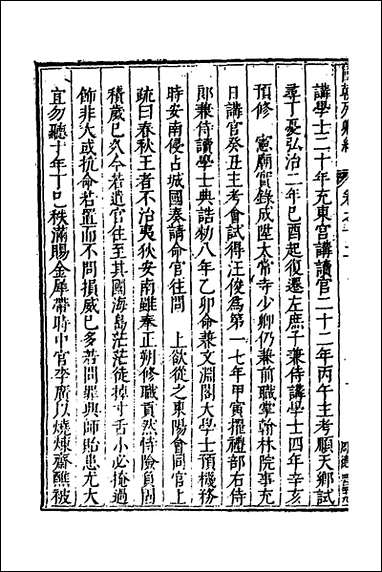 講學士二十年充東宮講讀官二十二年丙午主考順天鄉試
尋丁憂弘治二年己酉起復遷左庶子兼侍講學士四年辛亥
預修　憲廟實錄成陞太常寺少卿仍兼前職掌翰林院事充
日講官癸丑主考會試得汪俊爲第一七年甲寅擢禮部右侍
郎兼侍讀學士典誥勑八年乙卯命兼文淵閣大學士預機務
時安南侵占城國奏請命官往問　上欲從之東陽會同官上
疏曰春秋王者不治夷狄安南雖奉正朔修職貢然恃險負固
積歲已久今若遣官往至其國海島茫茫徒掉寸舌小必掩過
飾非大或抗命若置而不問損威已多若問罪興師貽患尤大
宜勿聽十年丁巳秩滿賜金犀帶時中官李廣以燒煉齋醮被